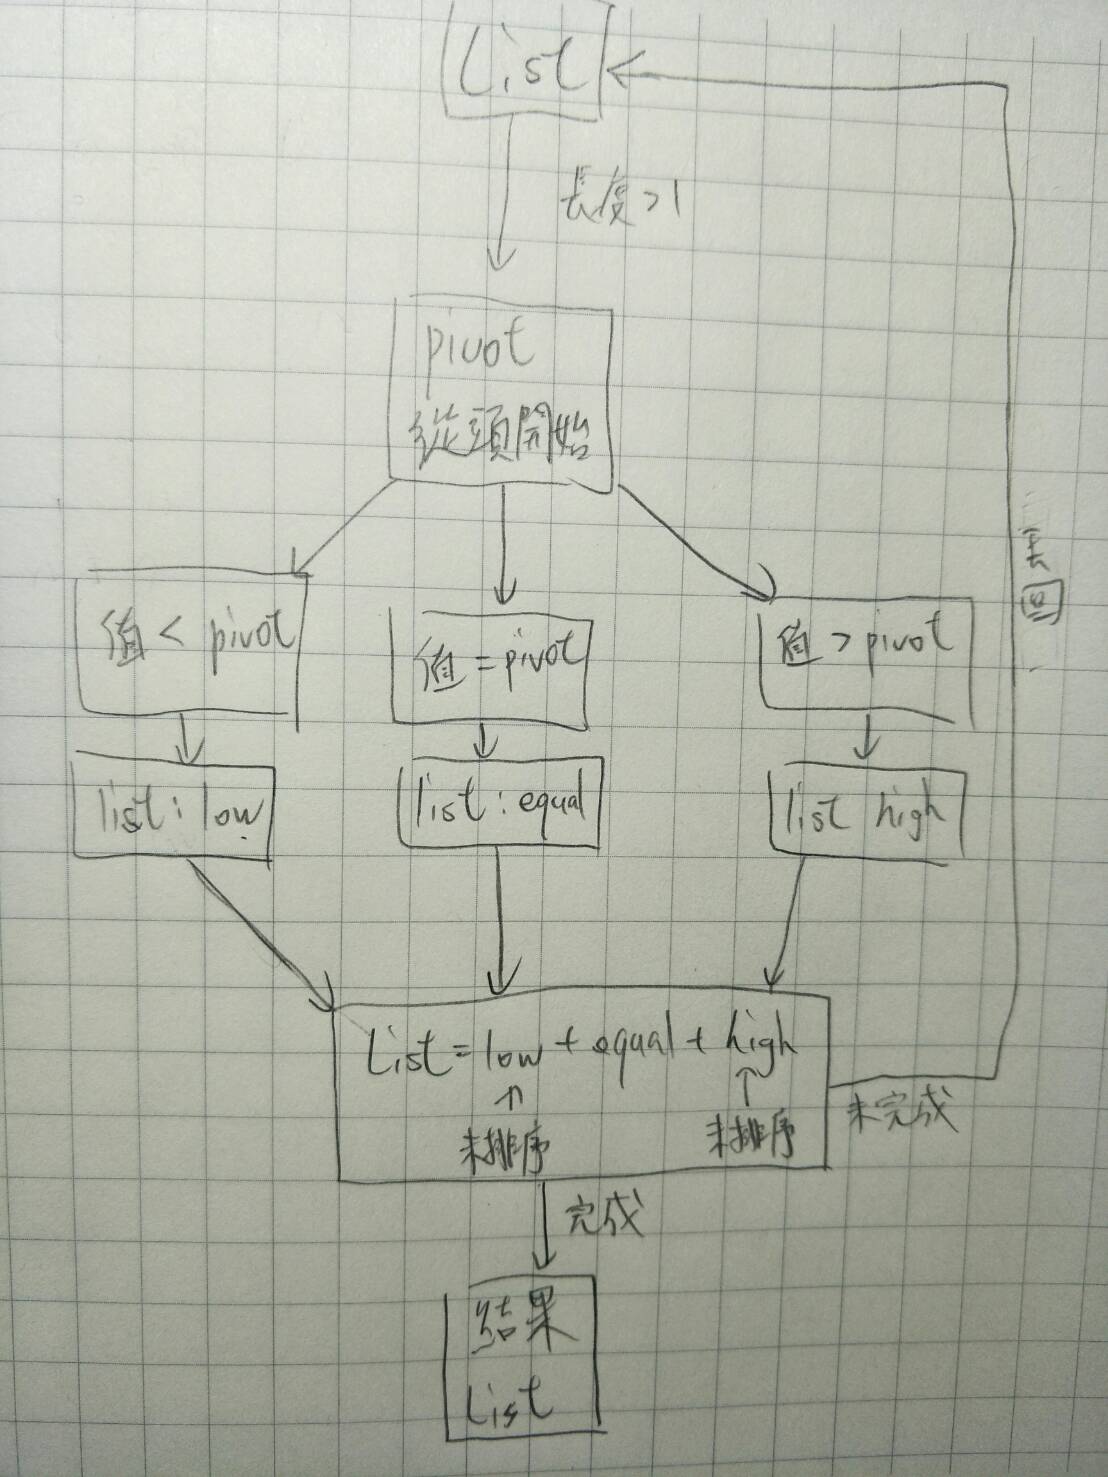 List
長度>1
pivot
從頭開始
值 < pivot
值 = pivot
值 > pivot
list : low
list : equal
list high
List = low + equal + high
未排序
未排序
未完成
完成
結果
List